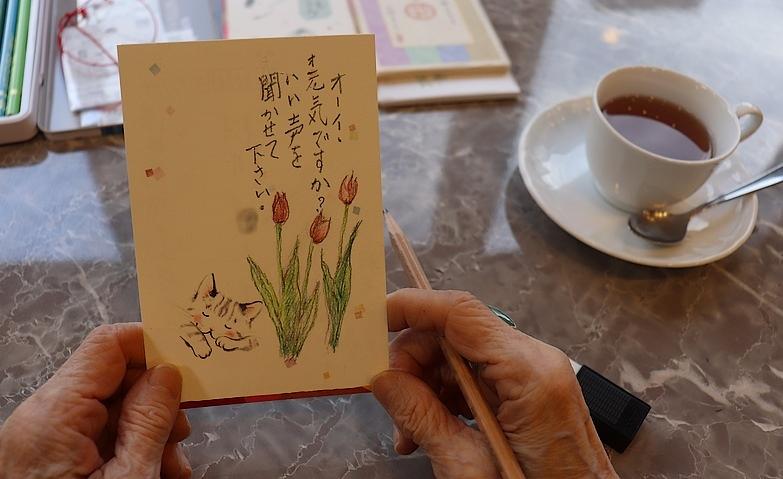 オーイ、
オ元気ですか?
いい声を
聞かせて
下さい。